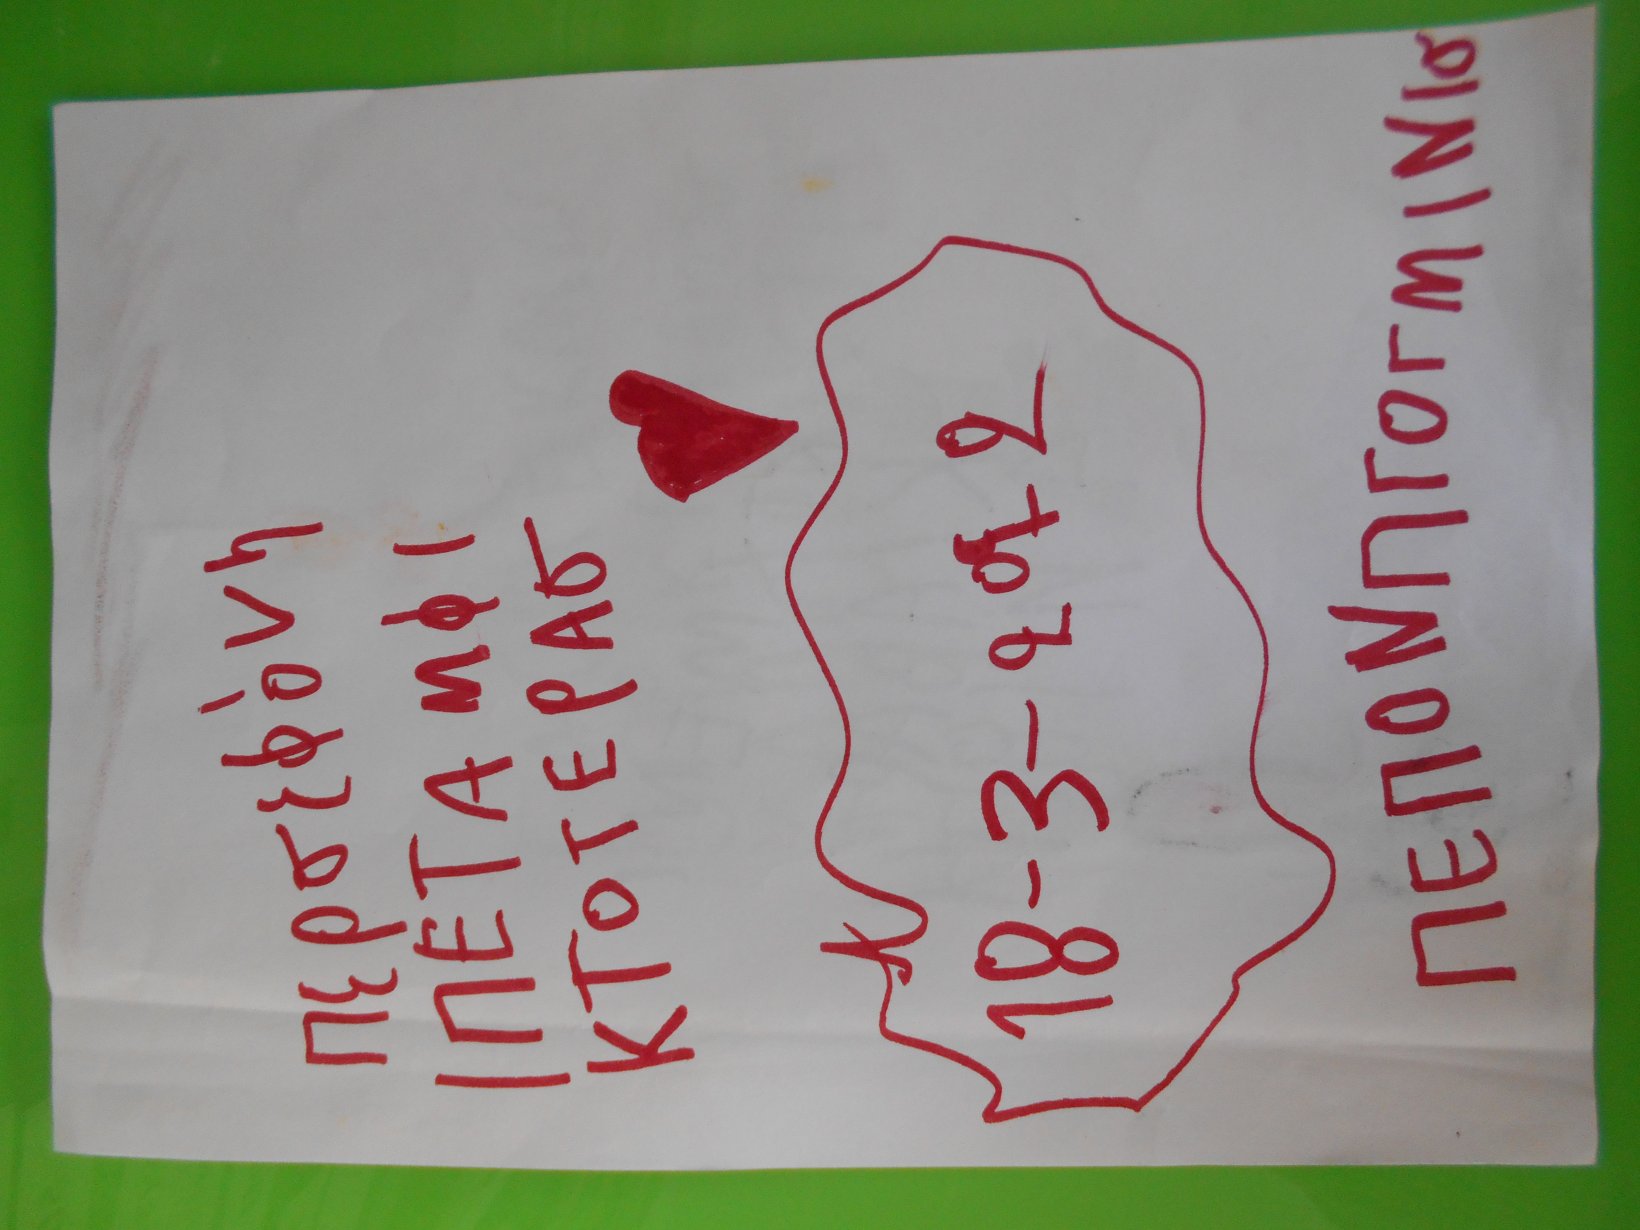 περσεφόνη
ΙΠΈΤΑΜΦΙ
ΚΤΟΤΕΡΑσ
18-3-2012
ΠΕΠΟΝΠΓΟΓΜΙΝΙσ